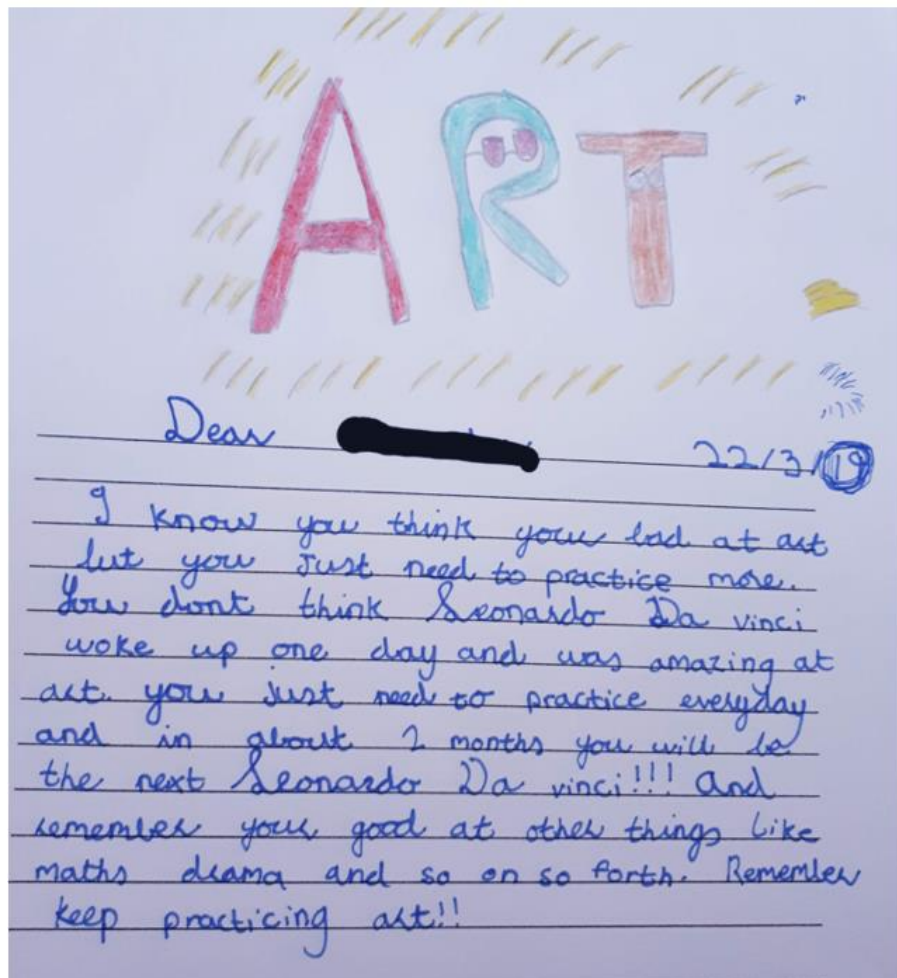 ART
Dear
22/3/19
I know you think your bad at art
but you just need to practice more.
You dont think Leonardo Da vinci
woke up one day and was amazing at
art. you just need to practice everyday
and in about 2 months you will be
the next Leonardo Da vinci!!! And
remember your good at other things like
maths drama and so on so forth. Remember
keep practicing art!!